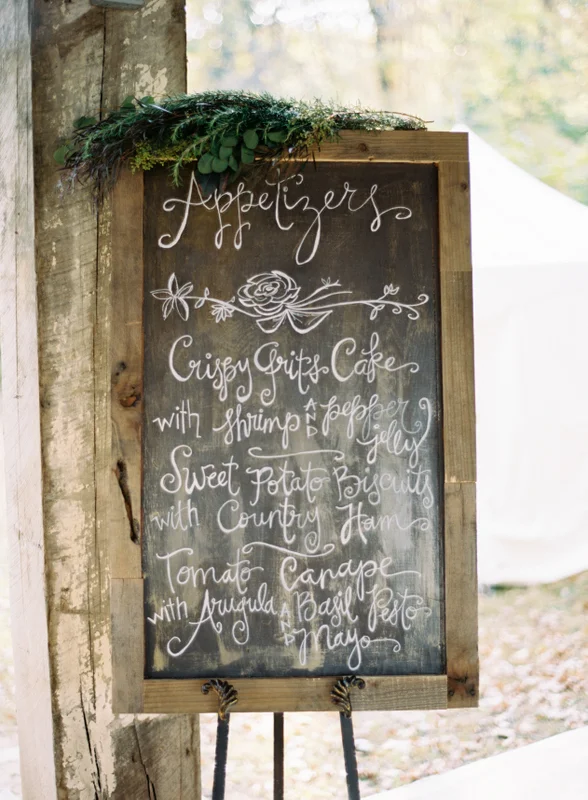 Appetizers
Crispy Grits Cake
with shrimp AND pepper
jelly
Sweet Potato Biscuits
with Country Ham
Tomato Canape
with Arugula AND Basil Pesto
Mayo